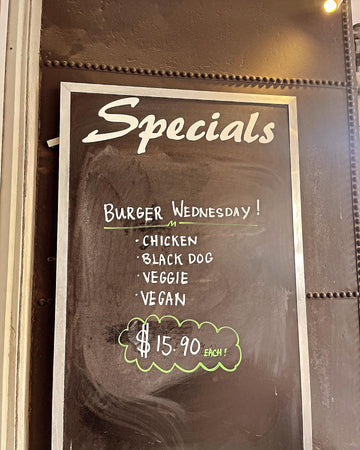 Specials
BURGER WEDNESDAY!
· CHICKEN
· BLACK DOG
· VEGGIE
· VEGAN
$15.90 EACH!